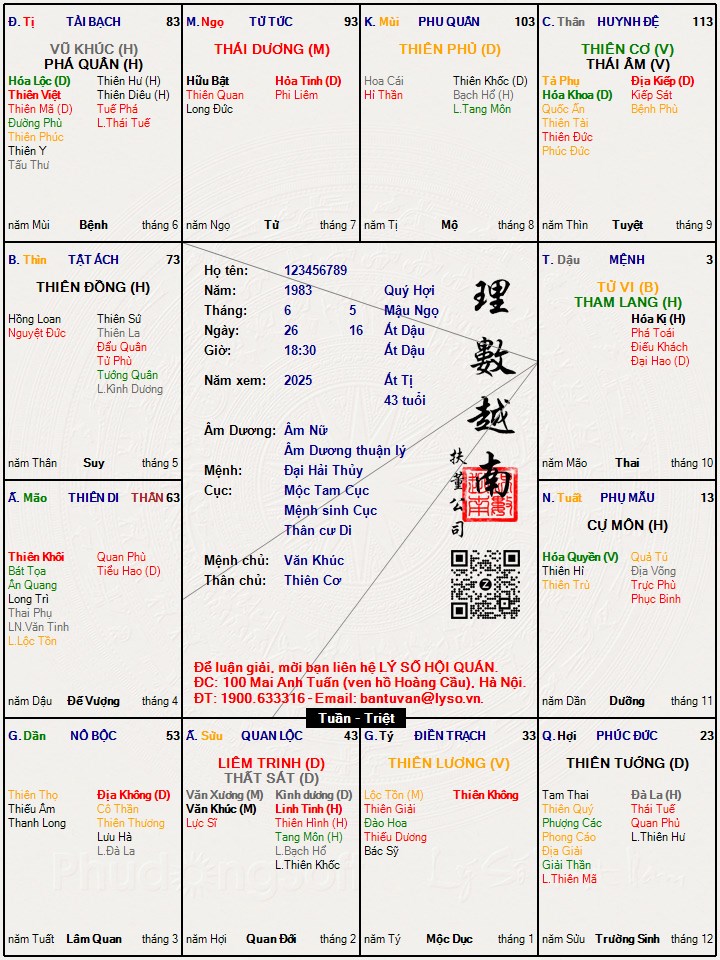 Đ. Tị TÀI BẠCH 83
VŨ KHÚC (H)
PHÁ QUÂN (H)
Hóa Lộc (D) Thiên Hư (H)
Thiên Việt Thiên Diêu (H)
Thiên Mã (D) Tuế Phá
Đường Phù L.Thái Tuế
Thiên Phúc
Thiên Y
Tấu Thư
năm Mùi Bệnh tháng 6
M. Ngọ TỬ TỨC 93
THÁI DƯƠNG (M)
Hữu Bật Hỏa Tinh (D)
Thiên Quan Phi Liêm
Long Đức
năm Ngọ Tử tháng 7
K. Mùi PHU QUÂN 103
THIÊN PHỦ (D)
Hoa Cái Thiên Khốc (D)
Hỉ Thần Bạch Hổ (H)
L.Tang Môn
năm Tị Mộ tháng 8
C. Thân HUYNH ĐỆ 113
THIÊN CƠ (V)
THÁI ÂM (V)
Tả Phụ Địa Kiếp (D)
Hóa Khoa (D) Kiếp Sát
Quốc Ấn Bệnh Phù
Thiên Tài
Thiên Đức
Phúc Đức
năm Thìn Tuyệt tháng 9
B. Thìn TẬT ÁCH 73
THIÊN ĐỒNG (H)
Hồng Loan Thiên Sứ
Nguyệt Đức Thiên La
Đẩu Quân
Tử Phù
Tướng Quân
L.Kình Dương
năm Thân Suy tháng 5
Họ tên: 123456789
Năm: 1983 Quý Hợi
Tháng: 6 5 Mậu Ngọ
Ngày: 26 16 Ất Dậu
Giờ: 18:30 Ất Dậu
Năm xem: 2025 Ất Tị
43 tuổi
Âm Dương: Âm Nữ
Âm Dương thuận lý
Mệnh: Đại Hải Thủy
Cục: Mộc Tam Cục
Mệnh sinh Cục
Thân cư Di
Mệnh chủ: Văn Khúc
Thân chủ: Thiên Cơ
理數越南
扶董公司
Z
Để luận giải, mời bạn liên hệ LÝ SỐ HỘI QUÁN.
ĐC: 100 Mai Anh Tuấn (ven hồ Hoàng Cầu), Hà Nội.
ĐT: 1900.633316 - Email: bantuvan@lyso.vn.
Tuần - Triệt
T. Dậu MỆNH 3
TỬ VI (B)
THAM LANG (H)
Hóa Kị (H)
Phá Toái
Điếu Khách
Đại Hao (D)
năm Mão Thai tháng 10
Ấ. Mão THIÊN DI THÂN 63
Thiên Khôi Quan Phù
Bát Tọa Tiểu Hao (D)
Ân Quang
Long Trì
Thai Phụ
LN.Văn Tinh
L.Lộc Tồn
năm Dậu Đế Vượng tháng 4
N. Tuất PHỤ MẪU 13
CỰ MÔN (H)
Hóa Quyền (V) Quả Tú
Thiên Hỉ Địa Võng
Thiên Trù Trực Phù
Phục Binh
năm Dần Dưỡng tháng 11
G. Dần NÔ BỘC 53
Thiên Thọ Địa Không (D)
Thiếu Âm Cô Thần
Thanh Long Thiên Thương
Lưu Hà
L.Đà La
năm Tuất Lâm Quan tháng 3
Ấ. Sửu QUAN LỘC 43
LIÊM TRINH (D)
THẤT SÁT (D)
Văn Xương (M) Kình dương (D)
Văn Khúc (M) Linh Tinh (H)
Lực Sĩ Thiên Hình (H)
Tang Môn (H)
L.Bạch Hổ
L.Thiên Khốc
năm Hợi Quan Đới tháng 2
G. Tý ĐIỀN TRẠCH 33
THIÊN LƯƠNG (V)
Lộc Tồn (M) Thiên Không
Thiên Giải
Đào Hoa
Thiếu Dương
Bác Sỹ
năm Tý Mộc Dục tháng 1
Q. Hợi PHÚC ĐỨC 23
THIÊN TƯỚNG (D)
Tam Thai Đà La (H)
Thiên Quý Thái Tuế
Phượng Các Quan Phủ
Phong Cáo L.Thiên Hư
Địa Giải
Giải Thần
L.Thiên Mã
năm Sửu Trường Sinh tháng 12